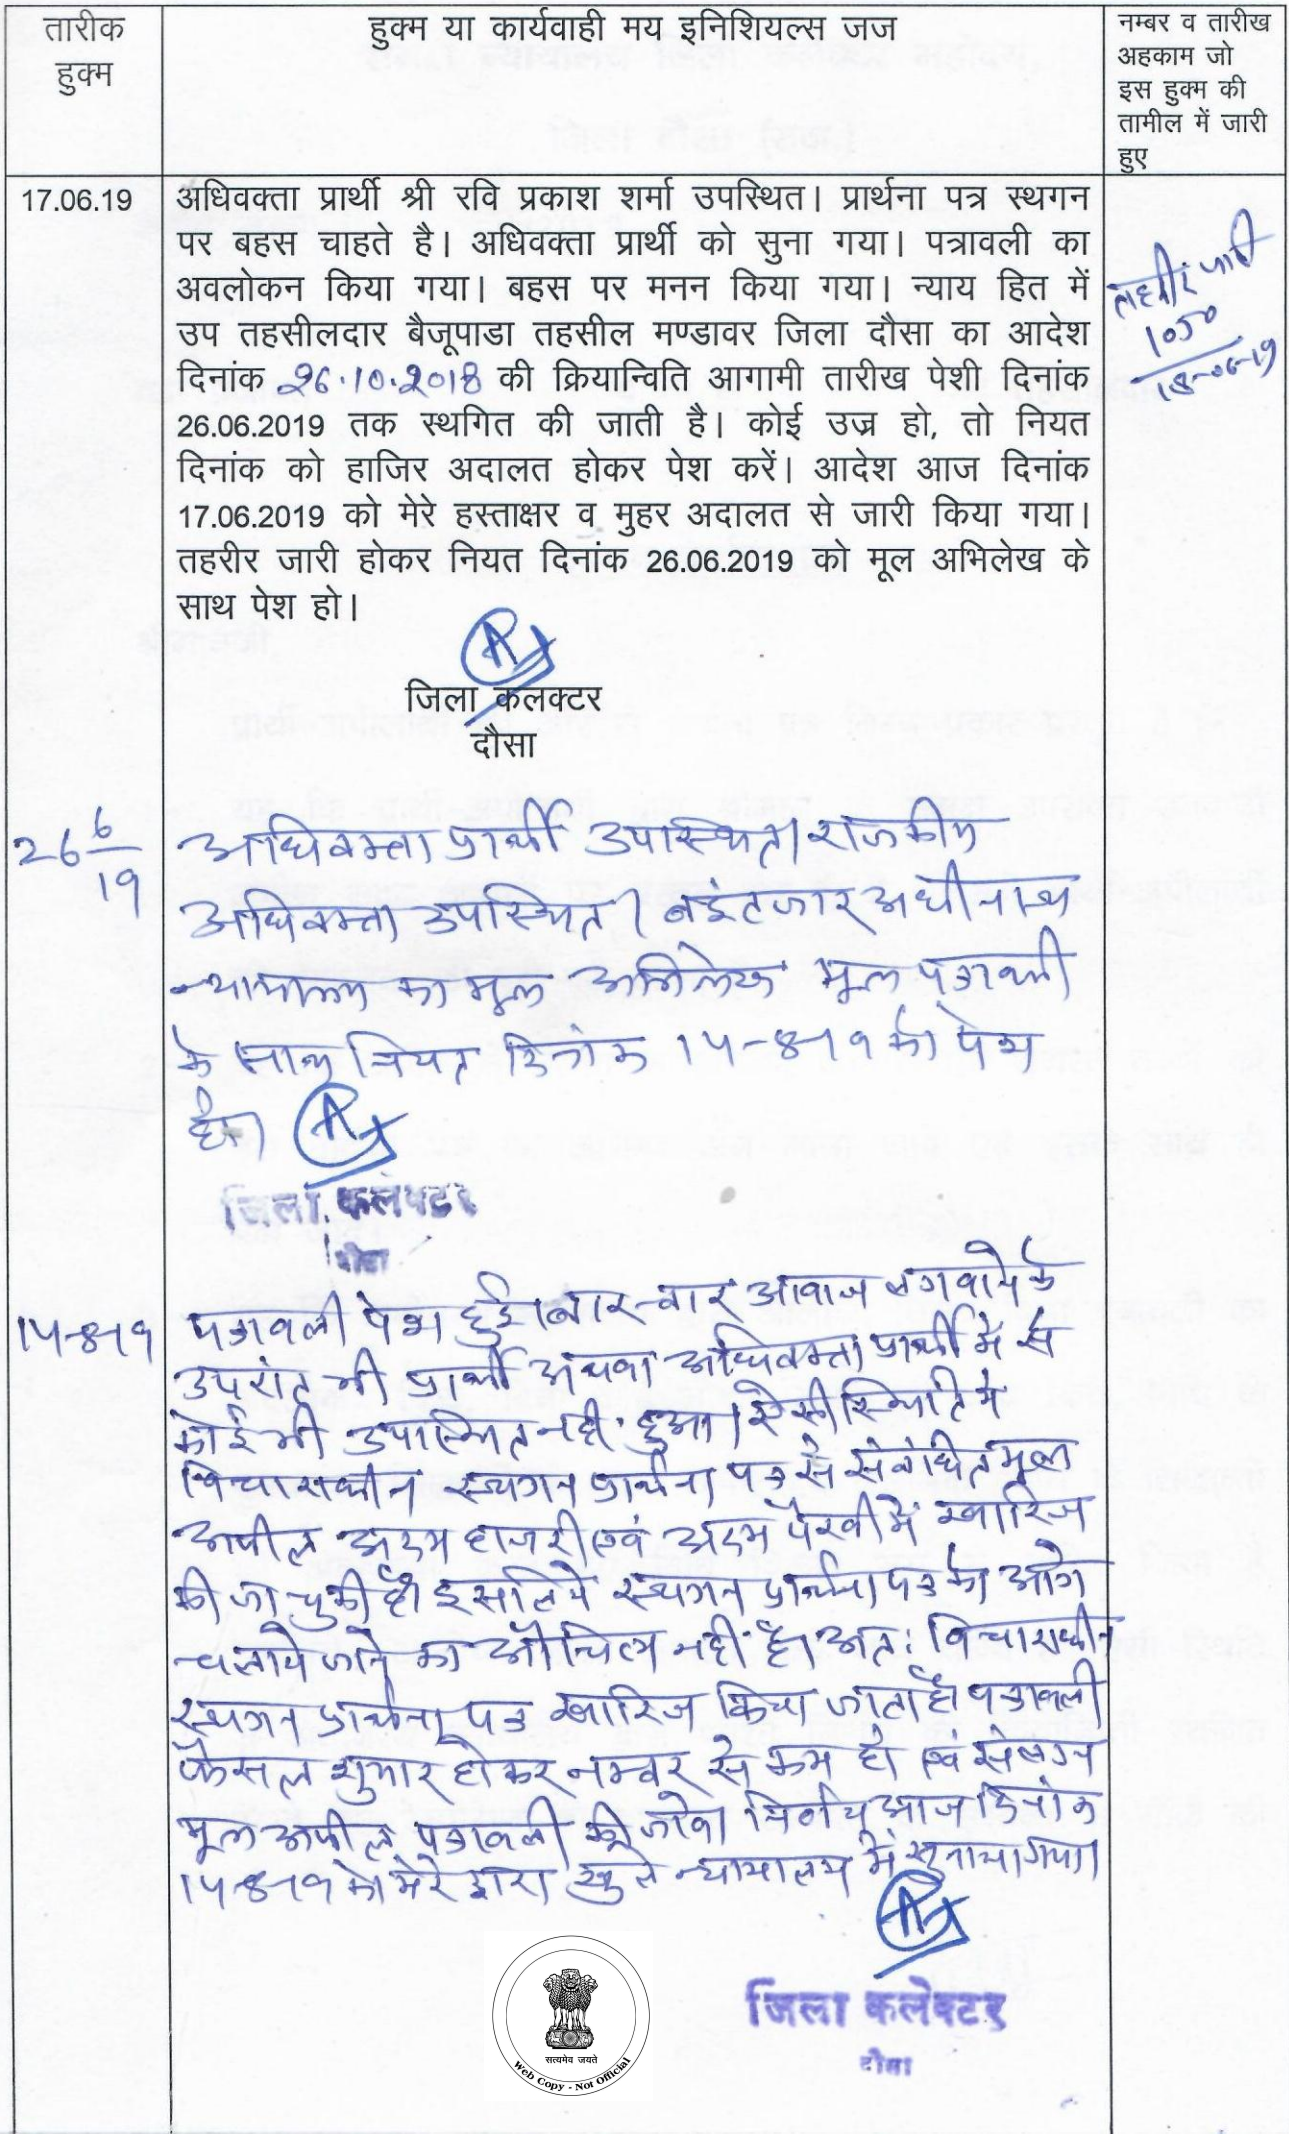 तारीक
हुक्म
हुक्म या कार्यवाही मय इनिशियल्स जज
नम्बर व तारीख
अहकाम जो
इस हुक्म की
तामील में जारी
हुए
17.06.19
अधिवक्ता प्रार्थी श्री रवि प्रकाश शर्मा उपस्थित। प्रार्थना पत्र स्थगन
पर बहस चाहते है। अधिवक्ता प्रार्थी को सुना गया। पत्रावली का
अवलोकन किया गया। बहस पर मनन किया गया। न्याय हित में
उप तहसीलदार बैजूपाडा तहसील मण्डावर जिला दौसा का आदेश
दिनांक 26.10.2018 की क्रियान्विति आगामी तारीख पेशी दिनांक
26.06.2019 तक स्थगित की जाती है। कोई उज्र हो, तो नियत
दिनांक को हाजिर अदालत होकर पेश करें। आदेश आज दिनांक
17.06.2019 को मेरे हस्ताक्षर व मुहर अदालत से जारी किया गया।
तहरीर जारी होकर नियत दिनांक 26.06.2019 को मूल अभिलेख के
साथ पेश हो।
तहरीर जारी
1050
18-06-19
जिला कलक्टर
दौसा
26 6/19
अधिवक्ता प्रार्थी उपस्थित। राजकीय
अधिवक्ता उपस्थित। बइंतजार अधीनस्थ
न्यायालय का मूल अभिलेख मूल पत्रावली
के साथ नियत दिनांक 14-8-19 को पेश
हो।
जिला कलेक्टर
दौसा
14-8-19
पत्रावली पेश हुई। बार-बार आवाज लगवाने के
उपरांत भी प्रार्थी अथवा अधिवक्ता प्रार्थी में से
कोई भी उपस्थित नहीं हुआ। ऐसी स्थिति में
विचाराधीन स्थगन प्रार्थना पत्र से संबंधित मूल
अपील अदम हाजरी एवं अदम पैरवी में खारिज
की जा चुकी है। इसलिये स्थगन प्रार्थना पत्र को आगे
चलाये जाने का औचित्य नहीं है। अतः विचाराधीन
स्थगन प्रार्थना पत्र खारिज किया जाता है। पत्रावली
फैसल शुमार होकर नम्बर से कम हो एवं संलग्न
मूल अपील पत्रावली की जावे। निर्णय आज दिनांक
14-8-19 को मेरे द्वारा खुले न्यायालय में सुनाया गया।
जिला कलेक्टर
दौसा
सत्यमेव जयते
Web Copy - Not Official